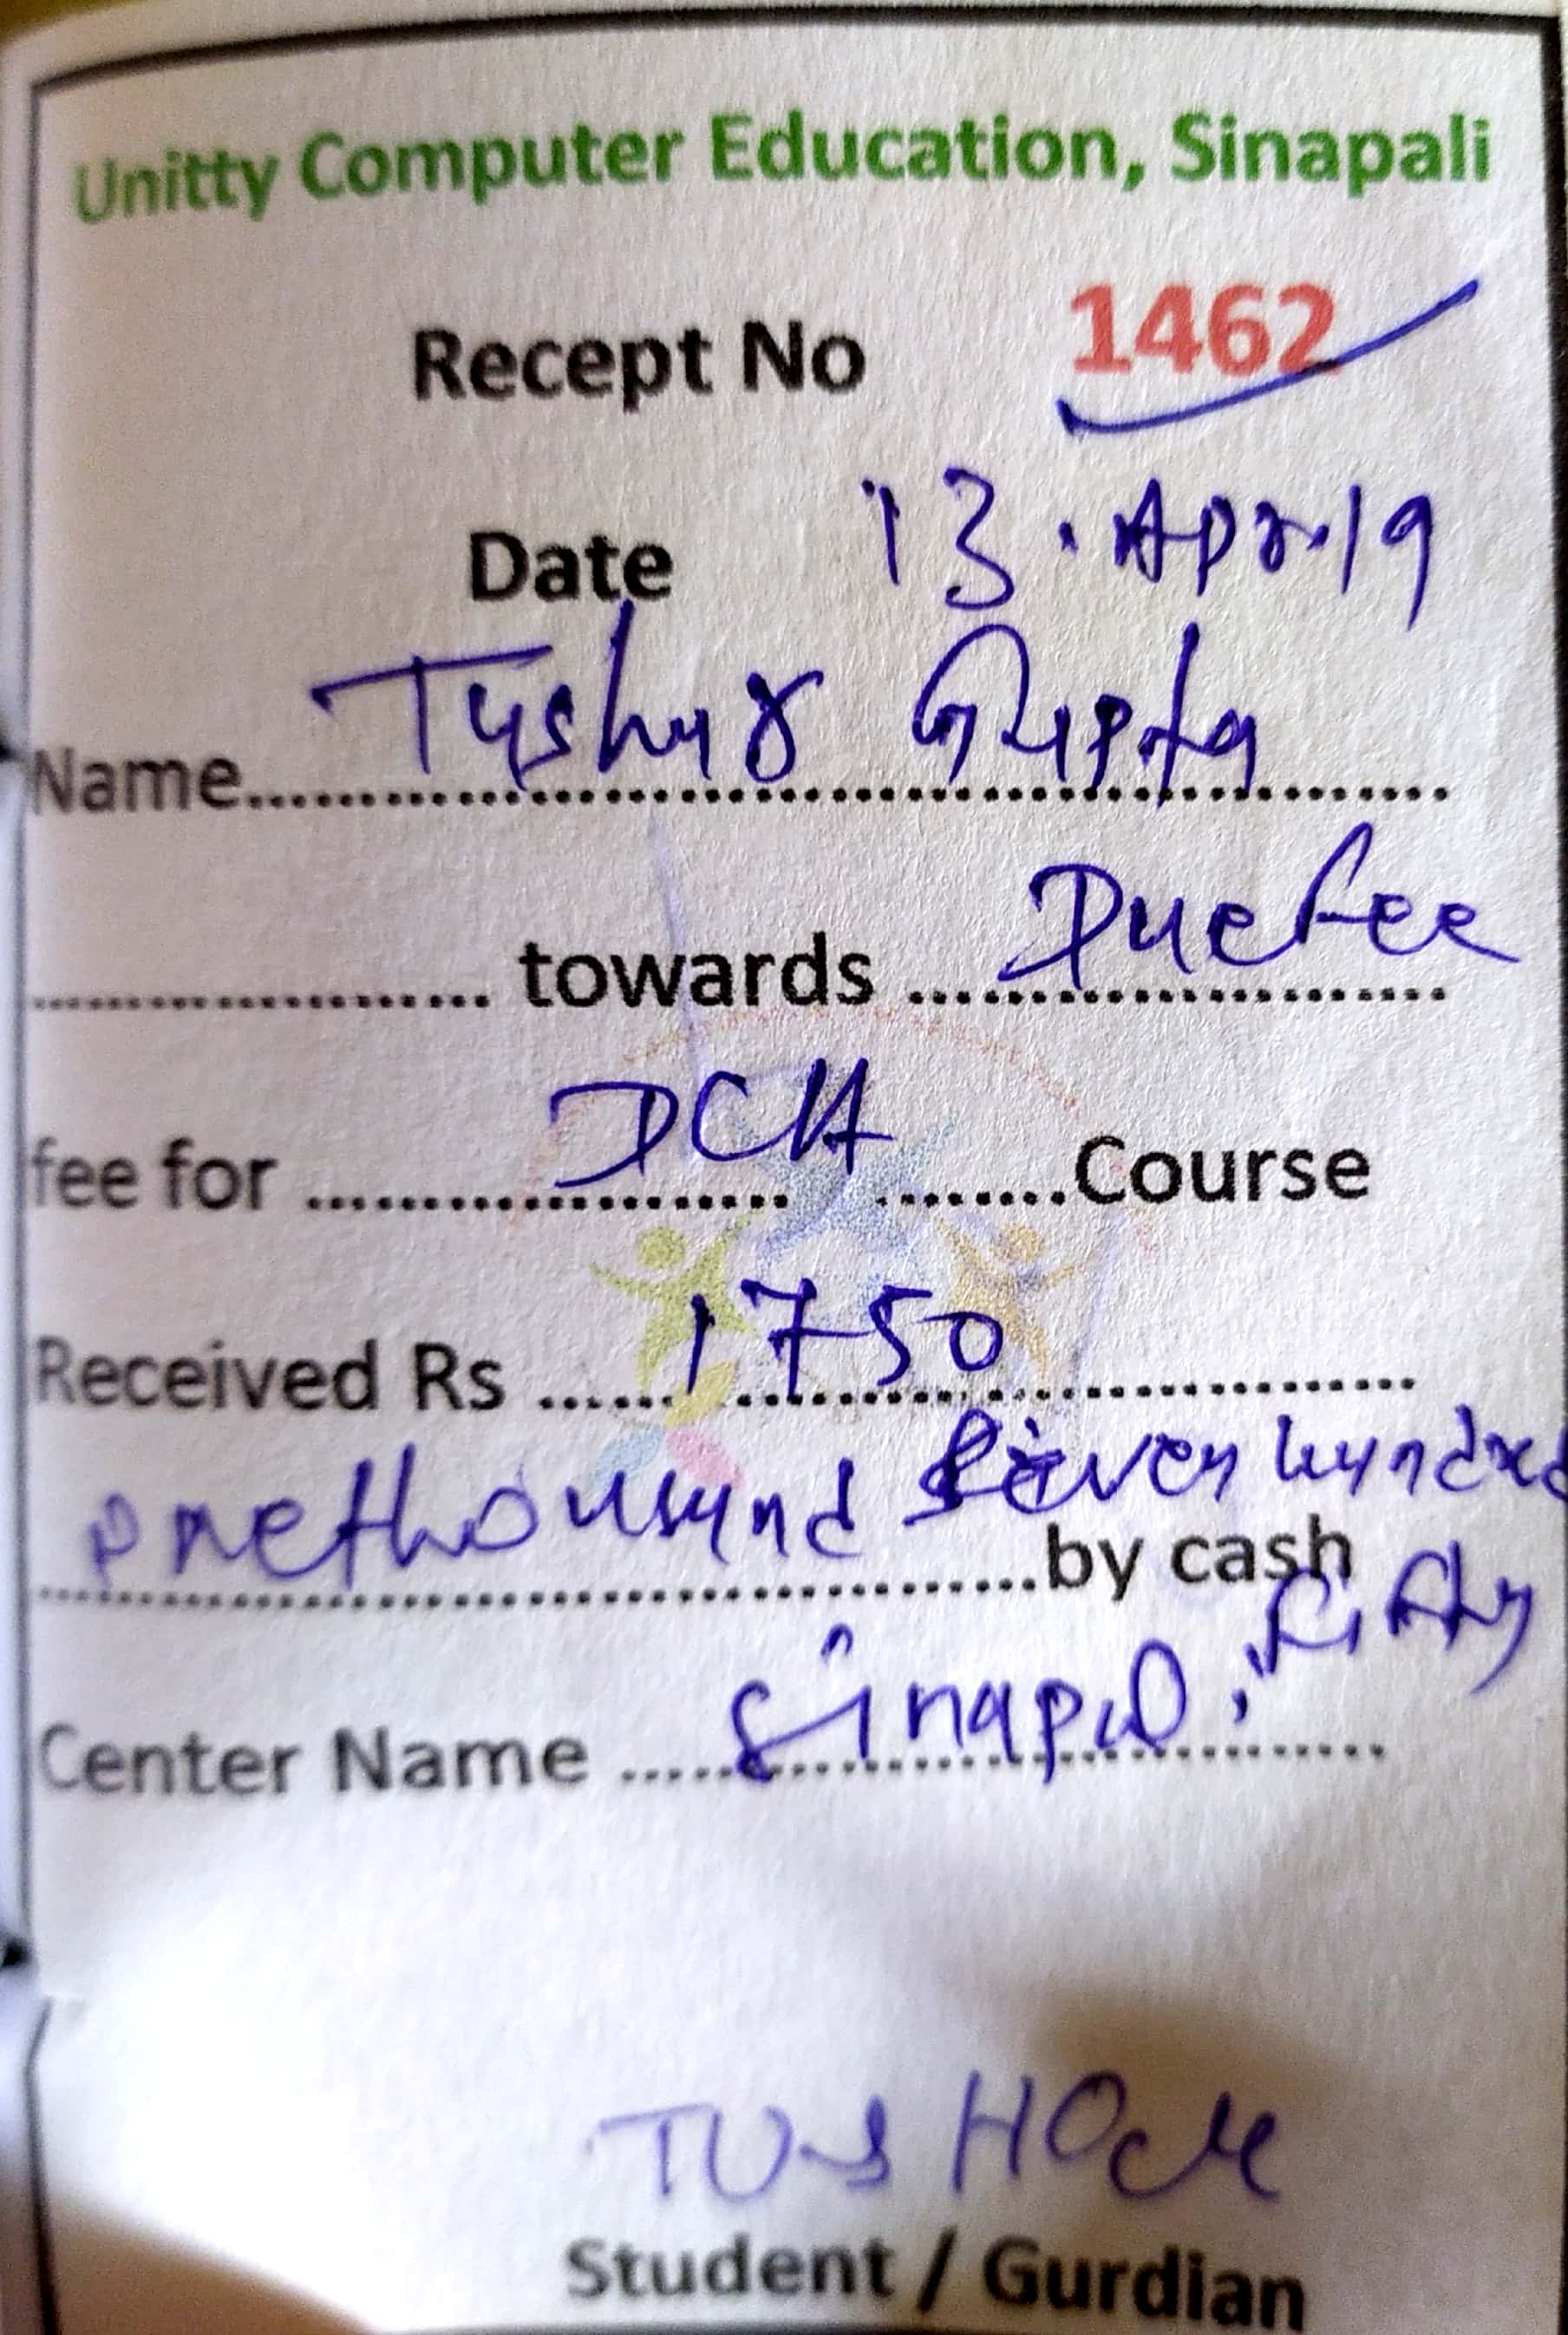 Unitty Computer Education, Sinapali
Recept No 1462
Date 13.Apr.19
Name.......Tushar Gupta.......
............ towards ...Due fee...
fee for .......DCA.......Course
Received Rs ......1750......
one thousand Seven hundred
............by cash fifty
Center Name .....Sinapali.....
TUSHAR
Student / Gurdian